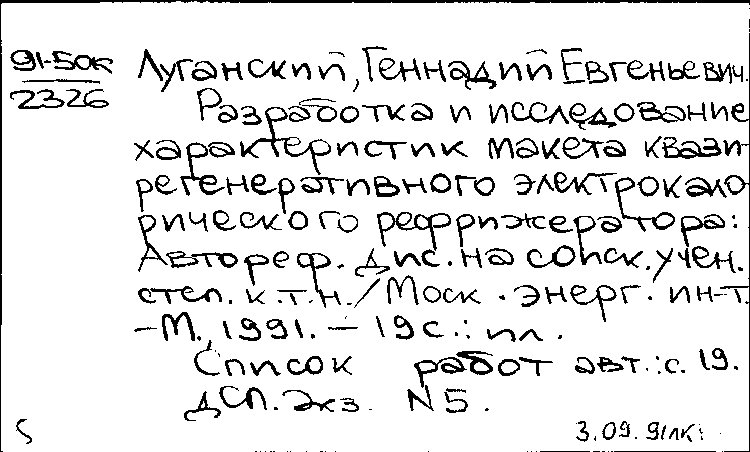 91-50к Луганский, Геннадий Евгеньевич.
2326 Разработка и исследование
характеристик макета квази
регенеративного электрокало
рического рефрижератора:
Автореф. дис. на соиск. учен.
степ. к.т.н. / Моск. энерг. ин-т.
-М., 1991. - 19 с.: ил.
Список работ авт.: с. 19.
ДСП. Экз. N 5.
3.09.91лк: